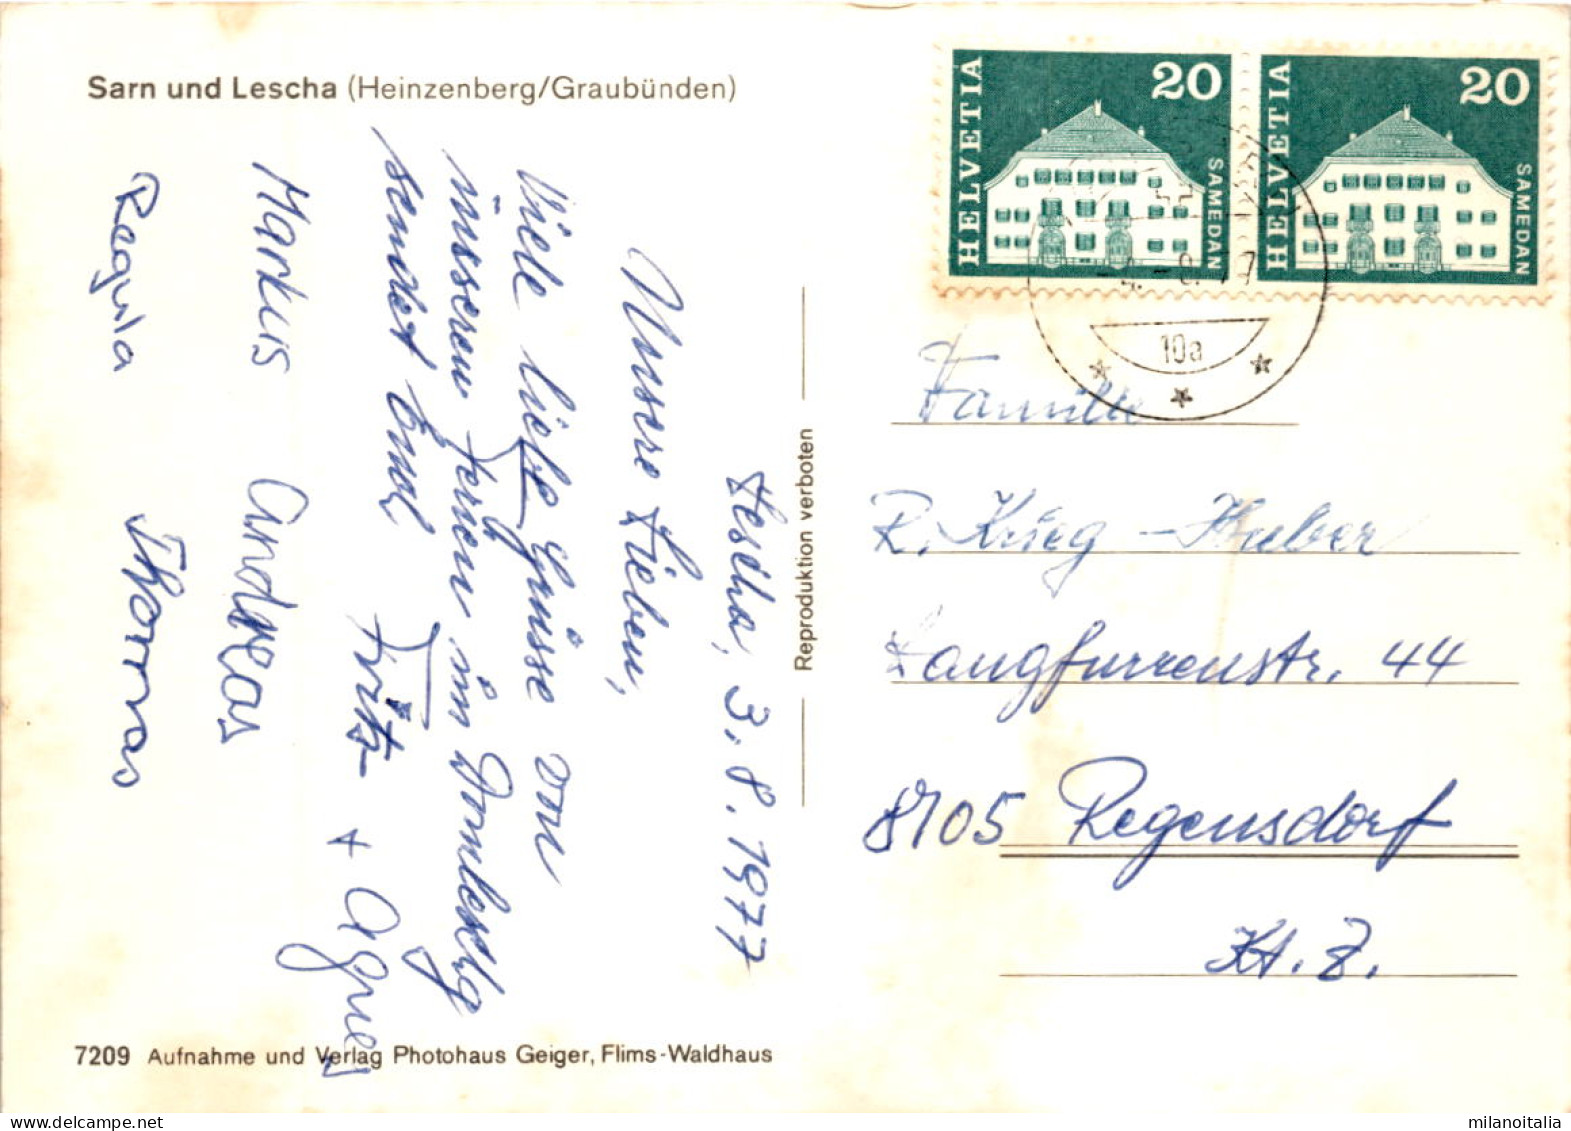 Sarn und Lescha (Heinzenberg/Graubünden)
Lescha, 3.8.1977
Unsere Lieben,
Viele liebe Grüsse von
unseren Ferien im Domleschg
sendet Euch
Fritz + Agnes
Markus Andreas
Regula Thomas
7209 Aufnahme und Verlag Photohaus Geiger, Flims-Waldhaus
Reproduktion verboten
HELVETIA 20 SAMEDAN
HELVETIA 20 SAMEDAN
10a
Familie
R. Krieg-Huber
Langfurrenstr. 44
8105 Regensdorf
Kt. Z.
milanoitalia